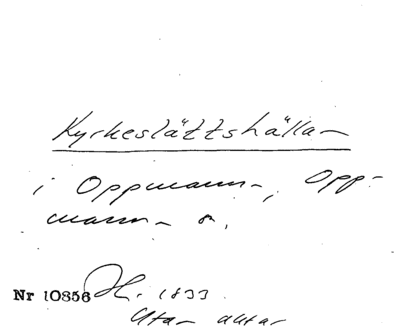 Kyrkeslättshällan
i Oppmanna, Opp-
manna s.
Nr 10856 H. 1833
Utan autor